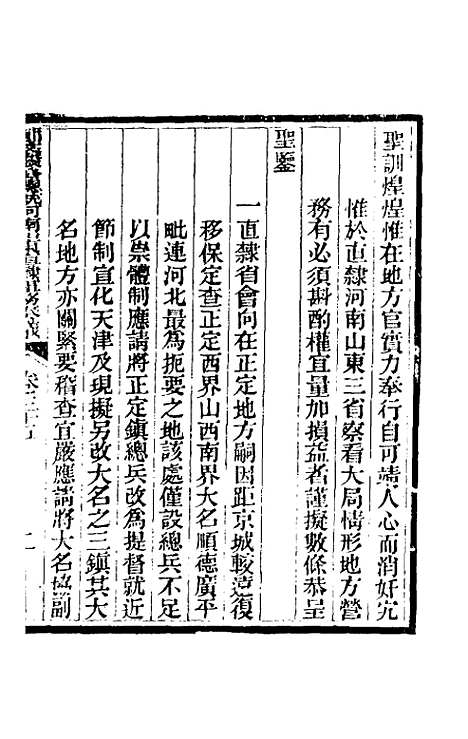 聖訓煌煌惟在地方官實力奉行自可靖人心而消奸宄
惟於直隸河南山東三省察看大局情形地方營
務有必須斟酌權宜量加損益者謹擬數條恭呈
聖鑒
一直隸省會向在正定地方嗣因距京城較遠復
移保定查正定西界山西南界大名順德廣平
毗連河北最為扼要之地該處僅設總兵不足
以崇體制應請將正定鎮總兵改為提督就近
節制宣化天津及現擬另改大名之三鎮其大
名地方亦關緊要稽查宜嚴應請將大名協副